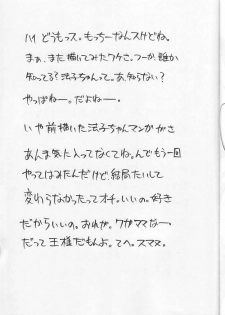 ハイ どうもっス。もっちーなんスけどね。
まあ、また描いてみたワケさ。つーか、誰か
知ってる? 法子ちゃんって。あ、知らない?
やっぱねー。だよねー。
いや前描いた法子ちゃんマンガがさ
あんま気に入ってなくてね。んでもう一回
やってはみたんだけど結局たいして
変わらなかったってオチ。いいの。好き
だからいいの。おれが。ワガママなー
だって王様だもんよ。てへ。スマヌ。